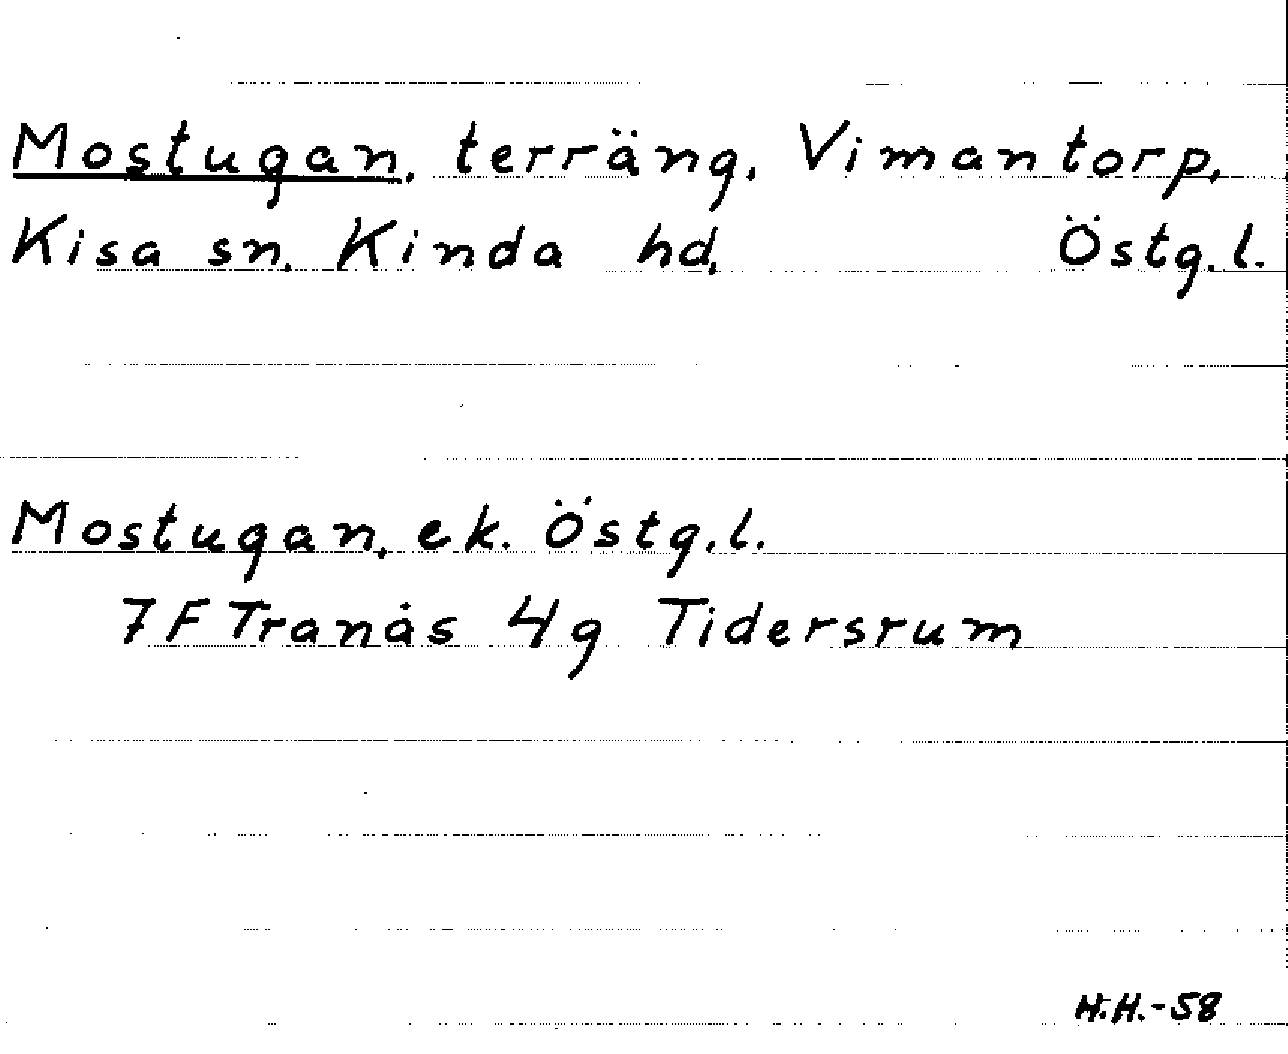 Mostugan, terräng, Vimantorp,
Kisa sn, Kinda hd, Östg.l.
Mostugan, ek. Östg.l.
7F Tranås 4g Tidersrum
H.H.-58